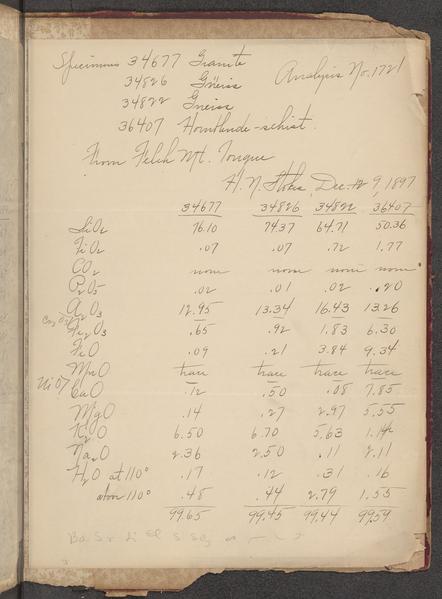 Specimens 34677 Granite
Analysis No. 1721
34826 Gneiss
34822 Gneiss
36407 Hornblende-schist.
From Felch Mt. Tongue
H. N. Stokes, Dec. 9, 1897
34677 34826 34822 36407
SiO2 76.10 74.37 64.71 50.36
TiO2 .07 .07 .72 1.77
CO2 none none none none
P2O5 .02 .01 .02 .20
Al2O3 12.95 13.34 16.43 13.26
Fe2O3 .65 .92 1.83 6.30
FeO .09 .21 3.84 9.34
MnO trace trace trace trace
CaO .12 .50 .08 7.85
MgO .14 .27 2.97 5.55
K2O 6.50 6.70 5.63 1.14
Na2O 2.36 2.50 .11 2.11
H2O at 110° .17 .12 .31 .16
above 110° .48 .44 2.79 1.55
99.65 99.45 99.44 99.59
Ba Sr Li Cl S SO3